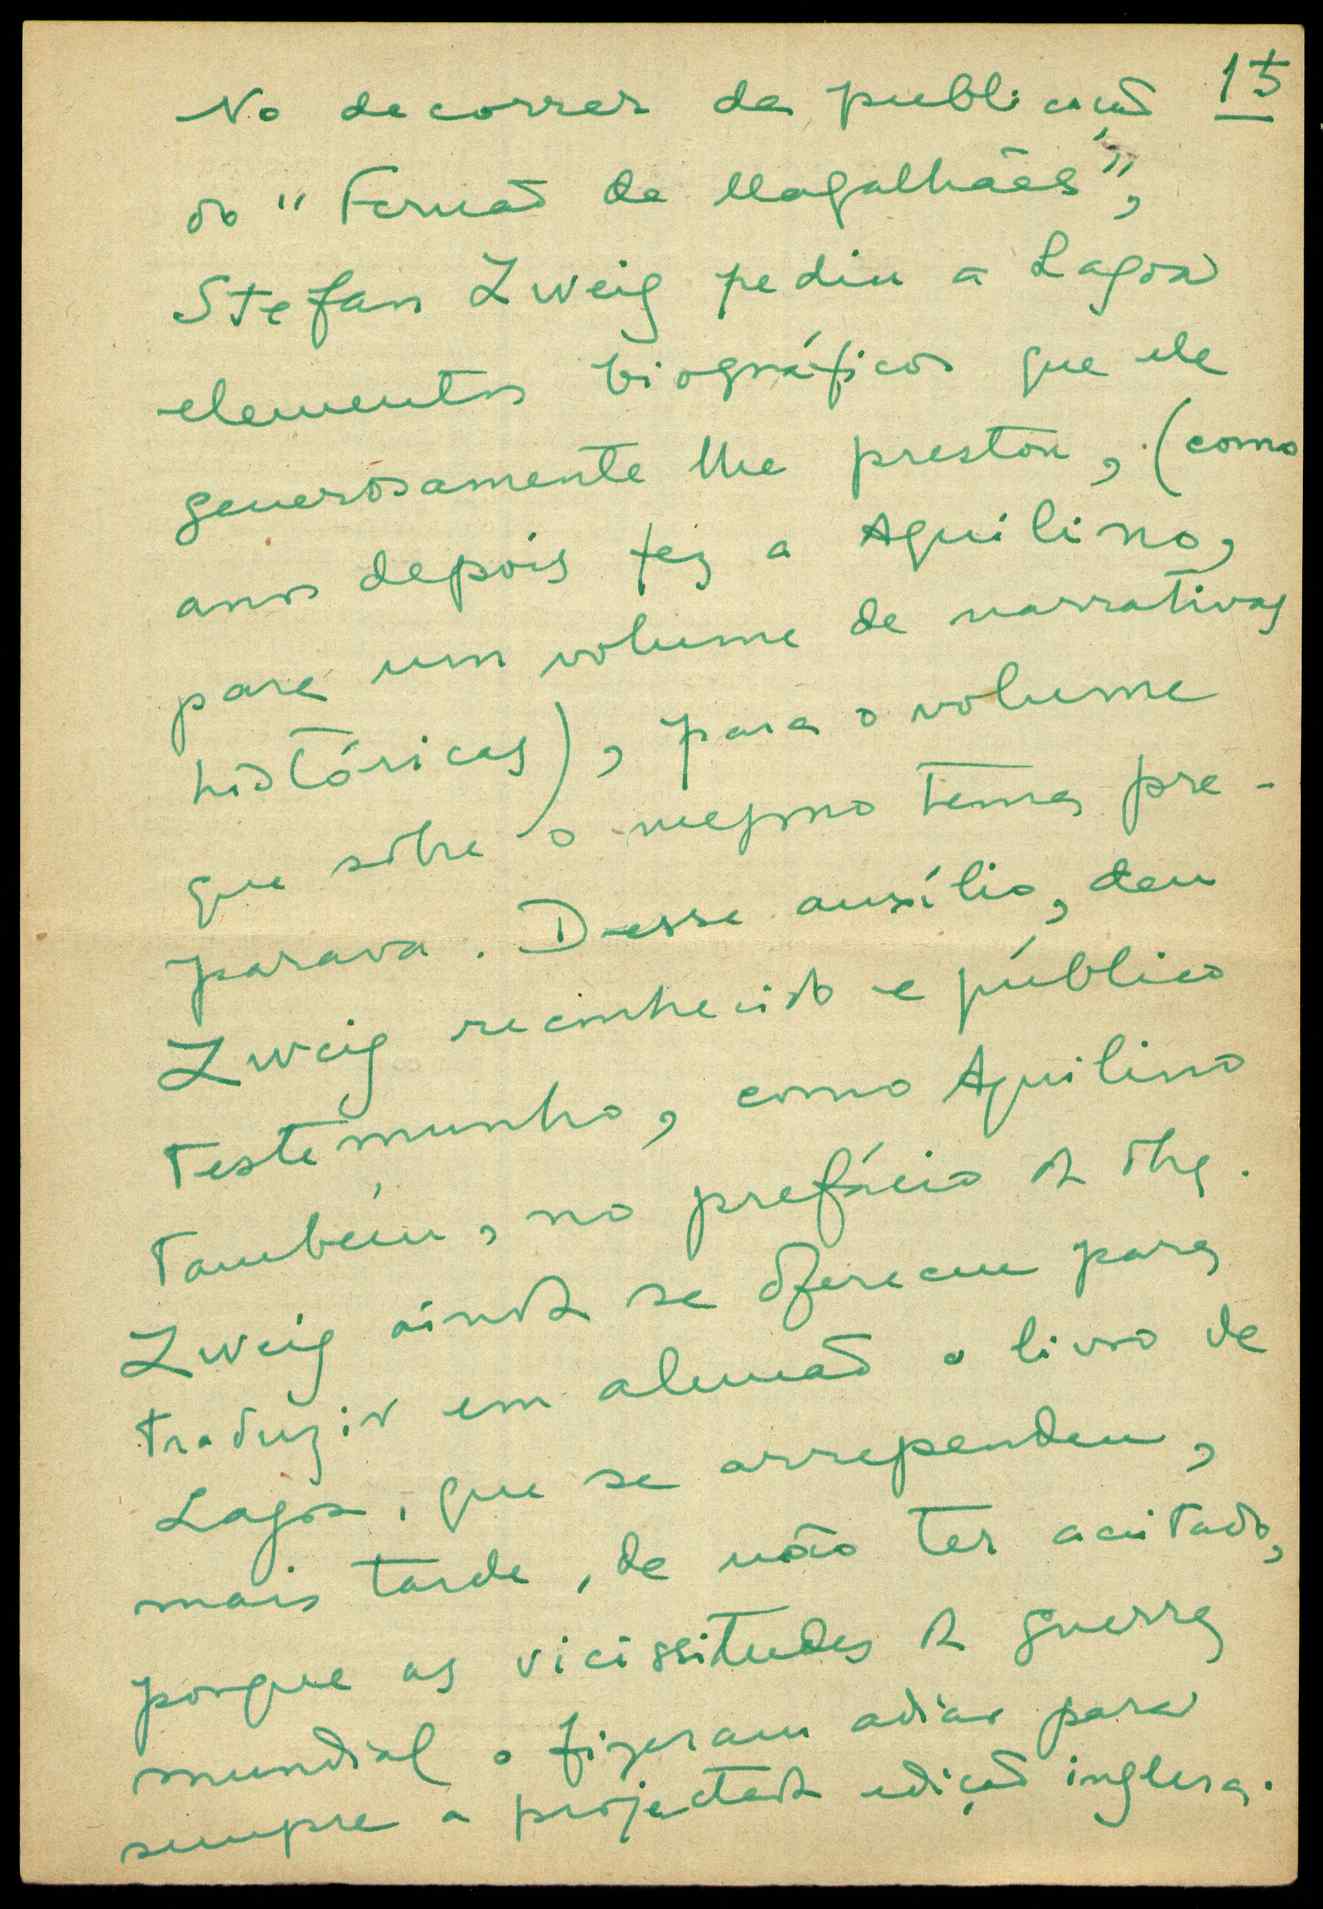 15
No decorrer da publicação
do "Fernão de Magalhães",
Stefan Zweig pediu a Lagôa
elementos biográficos que ele
generosamente lhe prestou, (como
anos depois fez a Aquilino,
para um volume de narrativas
históricas), para o volume
que sôbre o mesmo tema pre-
parava. Desse auxílio, deu
Zweig reconhecido e público
testemunho, como Aquilino
também, no prefácio da obra.
Zweig ainda se ofereceu para
traduzir em alemão o livro de
Lagoa, que se arrependeu,
mais tarde, de não ter aceitado,
porque as vicissitudes da guerra
mundial o fizeram adiar para
sempre a projectada edição inglesa.